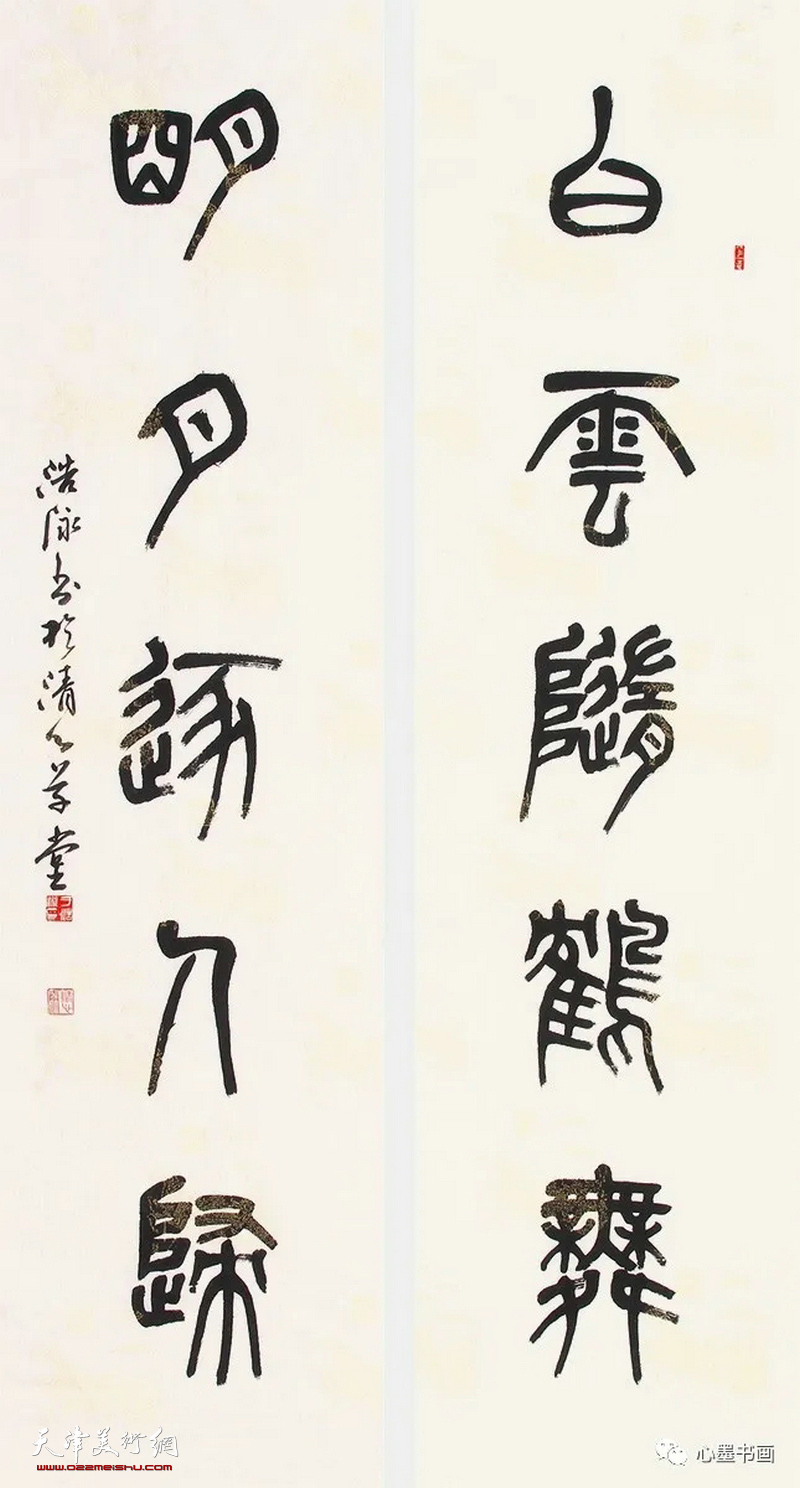 白雲隨鶴舞
明月逐人歸
浩泳書於清心草堂
天津美術網
www.022meishu.com
心墨书画